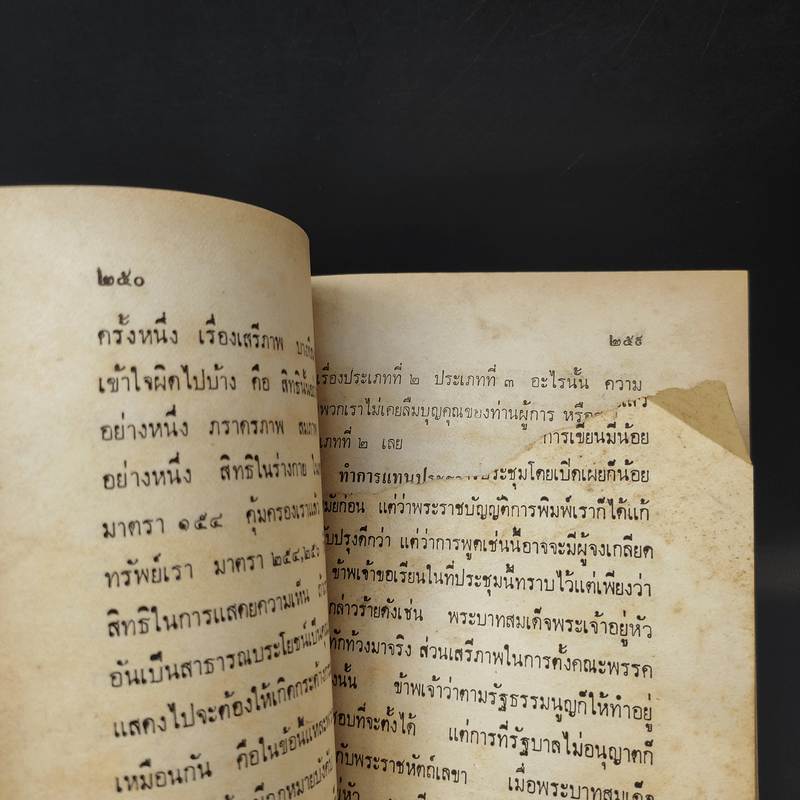 ๒๕๐
ครั้งหนึ่ง เรื่องเสรีภาพ
เข้าใจผิดไปบ้าง คือ สิทธินั้น
อย่างหนึ่ง ภราดรภาพ
อย่างหนึ่ง สิทธิในร่างกาย
มาตรา ๑๕๔ คุ้มครองเราแล้ว
ทรัพย์เรา มาตรา ๒๕๔,๒๕๖
สิทธิในการแสดงความเห็น
อันเป็นสาธารณประโยชน์เป็น
แสดงไปจะต้องให้เกิดกระด้าง
เหมือนกัน คือในข้อนี้
กฎหมายบังคับ
๒๕๕
เรื่องประเภทที่ ๒ ประเภทที่ ๓ อะไรนั้น ความ
พวกเราไม่เคยลืมบุญคุณของท่านผู้การ หรือ
เภทที่ ๒ เลย
แล้ว
การเขียนมีน้อย
ทำการแทน
ประชุมโดยเปิดเผยก็น้อย
มัยก่อน แต่ว่าพระราชบัญญัติการพิมพ์เราก็ได้แก้
ับปรุงดีกว่า แต่ว่าการพูดเช่นนี้อาจจะมีผู้จงเกลียด
ข้าพเจ้าขอเรียนในที่ประชุมนี้ทราบไว้แต่เพียงว่า
กล่าวร้ายดังเช่น พระบาทสมเด็จพระเจ้าอยู่หัว
ทักท้วงมาจริง ส่วนเสรีภาพในการตั้งคณะพรรค
งนั้น ข้าพเจ้าว่าตามรัฐธรรมนูญก็ให้ทำอยู่
ชอบที่จะตั้งได้ แต่การที่รัฐบาลไม่อนุญาตก็
กับพระราชหัตถ์เลขา เมื่อพระบาทสมเด็จ